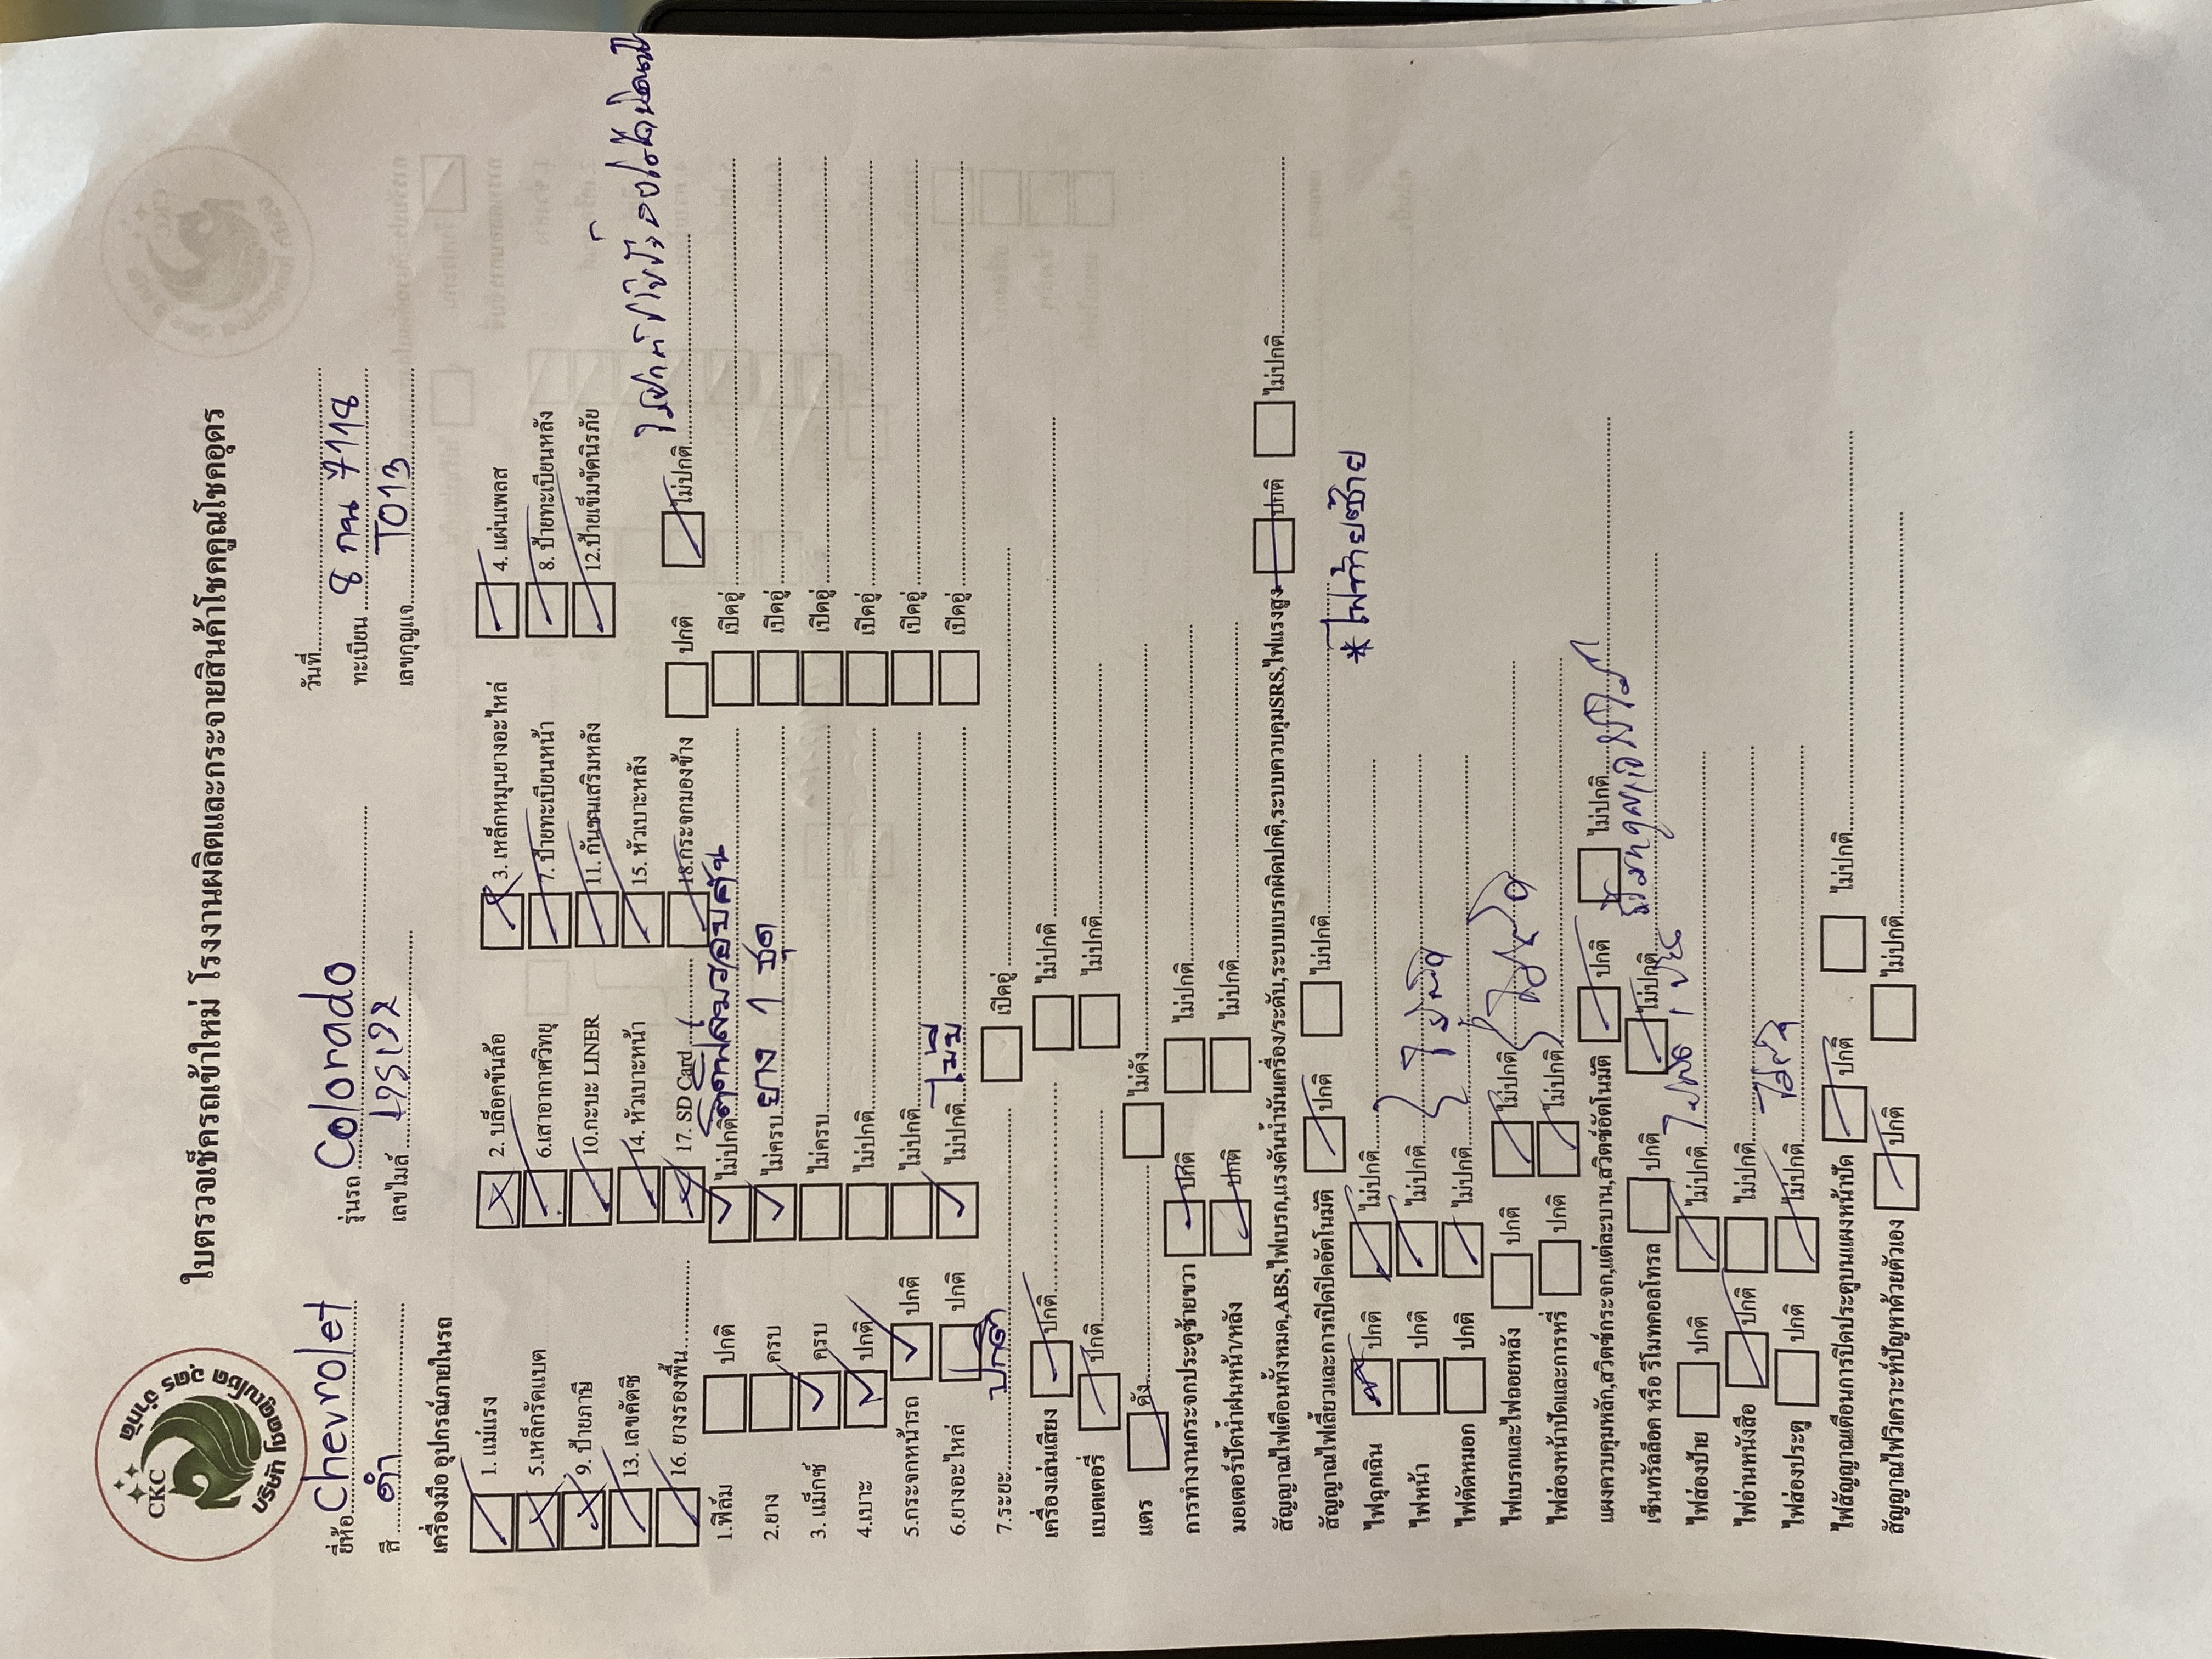 บริษัท โชคคูณโชค อุดร จำกัด
CKC
ใบตรวจเช็ครถเข้าใหม่ โรงงานผลิตและกระจายสินค้าโชคคูณโชคอุดร
วันที่
ยี่ห้อ Chevrolet รุ่นรถ Colorado ทะเบียน 8 กน 7118
สี ดำ เลขไมล์ เลขกุญแจ T013
เครื่องมือ อุปกรณ์ภายในรถ
1. แม่แรง 2. บล็อคขันล้อ 3. เหล็กหมุนยางอะไหล่ 4. แผ่นเพลส
5.เหล็กรัดแบต 6.เสาอากาศวิทยุ 7. ป้ายทะเบียนหน้า 8. ป้ายทะเบียนหลัง
9. ป้ายภาษี 10.กะบะ LINER 11. กันชนเสริมหลัง 12.ป้ายเข็มขัดนิรภัย
13. เลขคัตซี 14. หัวเบาะหน้า 15. หัวเบาะหลัง
16. ยางรองพื้น 17. SD Card 18.กระจกมองข้าง ปกติ ไม่ปกติ
1.ฟิล์ม ปกติ ไม่ปกติ ติดฟิล์มรอบคัน เปิดอู่
2.ยาง ครบ ไม่ครบ ยาง 1 ชุด เปิดอู่
3. แม็กซ์ ครบ ไม่ครบ เปิดอู่
4.เบาะ ปกติ ไม่ปกติ เปิดอู่
5.กระจกหน้ารถ ปกติ ไม่ปกติ เปิดอู่
6.ยางอะไหล่ ปกติ ไม่ปกติ ไม่มี เปิดอู่
7.ระยะ ปกติ เปิดอู่
เครื่องเล่นเสียง ปกติ ไม่ปกติ
แบตเตอรี่ ปกติ ไม่ปกติ
แตร ดัง ไม่ดัง
การทำงานกระจกประตูซ้ายขวา ปกติ ไม่ปกติ
มอเตอร์ปัดน้ำฝนหน้า/หลัง ปกติ ไม่ปกติ
สัญญาณไฟเตือนทั้งหมด,ABS,ไฟเบรก,แรงดันน้ำมันเครื่อง/ระดับ,ระบบเบรกผิดปกติ,ระบบควบคุมSRS,ไฟแรงสูง ปกติ ไม่ปกติ
สัญญาณไฟเลี้ยวและการเปิดปิดอัตโนมัติ ปกติ ไม่ปกติ
ไฟฉุกเฉิน ปกติ ไม่ปกติ * ไฟท้ายซ้าย
ไฟหน้า ปกติ ไม่ปกติ
ไฟตัดหมอก ปกติ ไม่ปกติ
ไฟเบรกและไฟถอยหลัง ปกติ ไม่ปกติ
ไฟส่องหน้าปัดและการหรี่ ปกติ ไม่ปกติ
แผงควบคุมหลัก,สวิตซ์กระจก,แต่ละบาน,สวิตซ์อัตโนมัติ ปกติ ไม่ปกติ
เซ็นทรัลล็อค หรือ รีโมทคอลโทรล ปกติ ไม่ปกติ
ไฟส่องป้าย ปกติ ไม่ปกติ
ไฟอ่านหนังสือ ปกติ ไม่ปกติ
ไฟส่องประตู ปกติ ไม่ปกติ
ไฟสัญญาณเตือนการปิดประตูบนแผงหน้าปัด ปกติ ไม่ปกติ
สัญญาณไฟวิเคราะห์ปัญหาด้วยตัวเอง ปกติ ไม่ปกติ